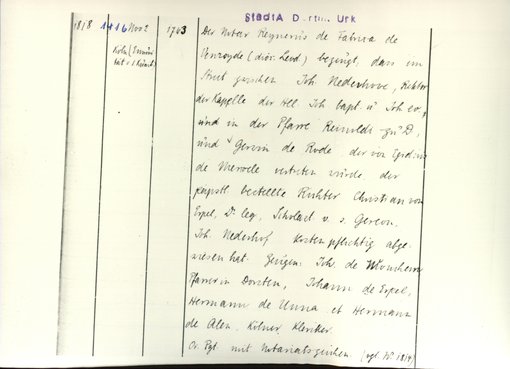 StadtA Dortm. Urk
1818 1416 Nov 2 1703 Der Notar Reynerus de Fabrica de
Köln (Immuni- Venroyde (diöz. Leod.) bezeugt, dass im
tät v. s. Kunib.) Streit zwischen Joh. Nederhove, Rektor
der Kapelle der Hll. Joh. bapt. u. Joh. ev.,
und in der Pfarre Reinoldi zu D.,
und Gerwin de Rode, der von Egidius
de vertreten wurde, der
päpstl. bestellte Richter Christian von
Erpel, Dr. leg., Scholast v. s. Gereon,
Joh. Nederhof kostenpflichtig abge-
wiesen hat. Zeugen: Joh. de
Pfarrer in Dorsten, Johann de Erpel,
Hermann de Unna et Hermann
de Alen, Kölner Kleriker.
Or. Pgt. mit Notariatszeichen (vgl. Nr. 1814)